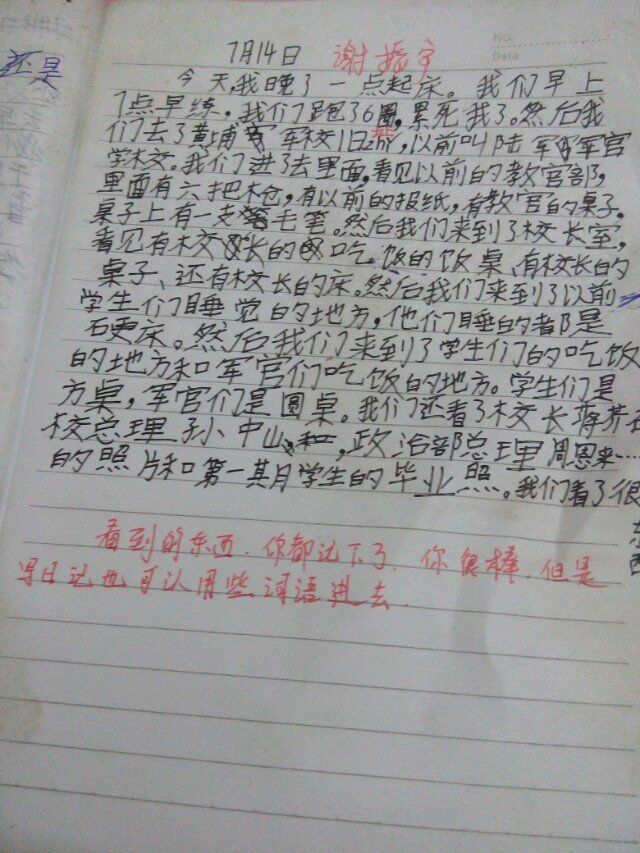 还是
No.
Date
7月14日 谢振宇
今天,我晚了一点起床。我们早上
7点早练,我们跑了6圈,累死我了。然后我
们去了黄埔军校旧址,以前叫陆军军官
学校。我们进了去里面,看见以前的教官部,
里面有六把枪,有以前的报纸,有教官的桌子。
桌子上有一支毛笔。然后我们来到了校长室,
看见有校长的吃饭的饭桌、有校长的
桌子、还有校长的床。然后我们来到了以前
学生们睡觉的地方,他们睡的都是
硬床。然后我们来到了学生们的吃饭
的地方和军官们吃饭的地方。学生们是
方桌,军官们是圆桌。我们还看了校长蒋介石
校总理孙中山、,政治部总理周恩来……
的照片和第一期学生的毕业照。我们看了很
东西
看到的东西,你都记下了,你很棒,但是
写日记也可以用些词语进去.